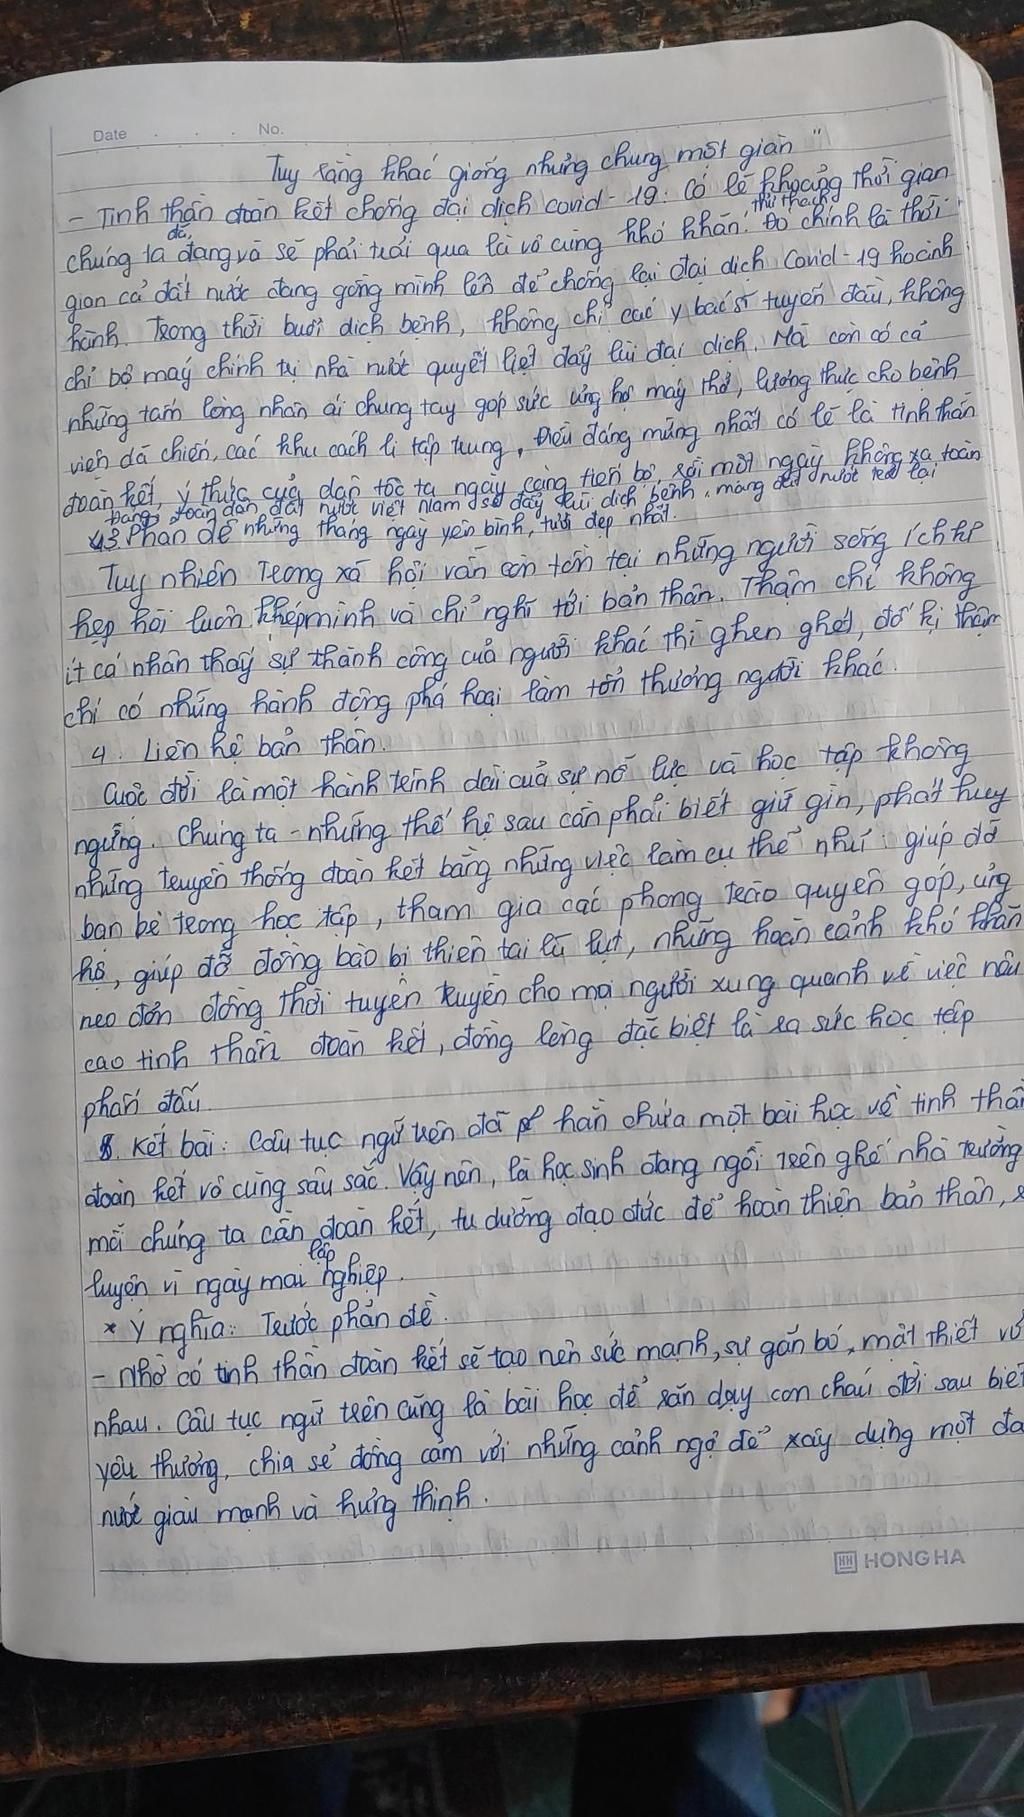 Date . . . No.
Tuy rằng khác giống nhưng chung một giàn"
- Tinh thần đoàn kết chống đại dịch covid-19: Có lẽ khoảng thời gian
đã thử thách
chúng ta đang và sẽ phải trải qua là vô cùng khó khăn. Đó chính là thời
gian cả đất nước đang gồng mình lên để chống lại đại dịch Covid-19 hoành
hành. Trong thời buổi dịch bệnh, không chỉ các y bác sĩ tuyến đầu, không
chỉ bộ máy chính trị nhà nước quyết liệt đẩy lùi đại dịch. Mà còn có cả
những tấm lòng nhân ái chung tay góp sức ủng hộ máy thở, lương thực cho bệnh
viện dã chiến, các khu cách li tập trung, điều đáng mừng nhất có lẽ là tinh thần
đoàn kết, ý thức của dân tộc ta ngày càng tiến bộ, rồi một ngày không xa, toàn
Đảng, toàn dân đất nước việt Nam sẽ đẩy lùi dịch bệnh, mang đất nước trở lại
3. Phản đề những tháng ngày yên bình, tươi đẹp nhất.
Tuy nhiên trong xã hội vẫn còn tồn tại những người sống ích kỉ
hẹp hòi luôn khép mình và chỉ nghĩ tới bản thân. Thậm chí không
ít cá nhân thấy sự thành công của người khác thì ghen ghét, đố kị thậm
chí có những hành động phá hoại làm tổn thương người khác.
4. Liên hệ bản thân.
Cuộc đời là một hành trình dài của sự nỗ lực và học tập không
ngừng. Chúng ta - những thế hệ sau cần phải biết giữ gìn, phát huy
những truyền thống đoàn kết bằng những việc làm cụ thể như: giúp đỡ
bạn bè trong học tập, tham gia các phong trào quyên góp, ủng
hộ, giúp đỡ đồng bào bị thiên tai lũ lụt, những hoàn cảnh khó khăn
neo đơn đồng thời tuyên truyền cho mọi người xung quanh về việc nâu
cao tinh thần đoàn kết, đồng lòng đặc biệt là ra sức học tập
phấn đấu.
5. Kết bài: Câu tục ngữ trên đã hàn chứa một bài học về tinh thần
đoàn kết vô cùng sâu sắc. Vậy nên, là học sinh đang ngồi trên ghế nhà trường
mỗi chúng ta cần đoàn kết, tu dưỡng đạo đức để hoàn thiện bản thân,
lập
luyện vì ngày mai nghiệp.
* Ý nghĩa: Trước phản đề.
- Nhờ có tinh thần đoàn kết sẽ tạo nên sức mạnh, sự gắn bó, mật thiết vớ
nhau. Câu tục ngữ trên cũng là bài học để răn dạy con cháu đời sau biết
yêu thương, chia sẻ đồng cảm với những cảnh ngộ để xây dựng một đa
nước giàu mạnh và hưng thịnh.
HH HONG HA